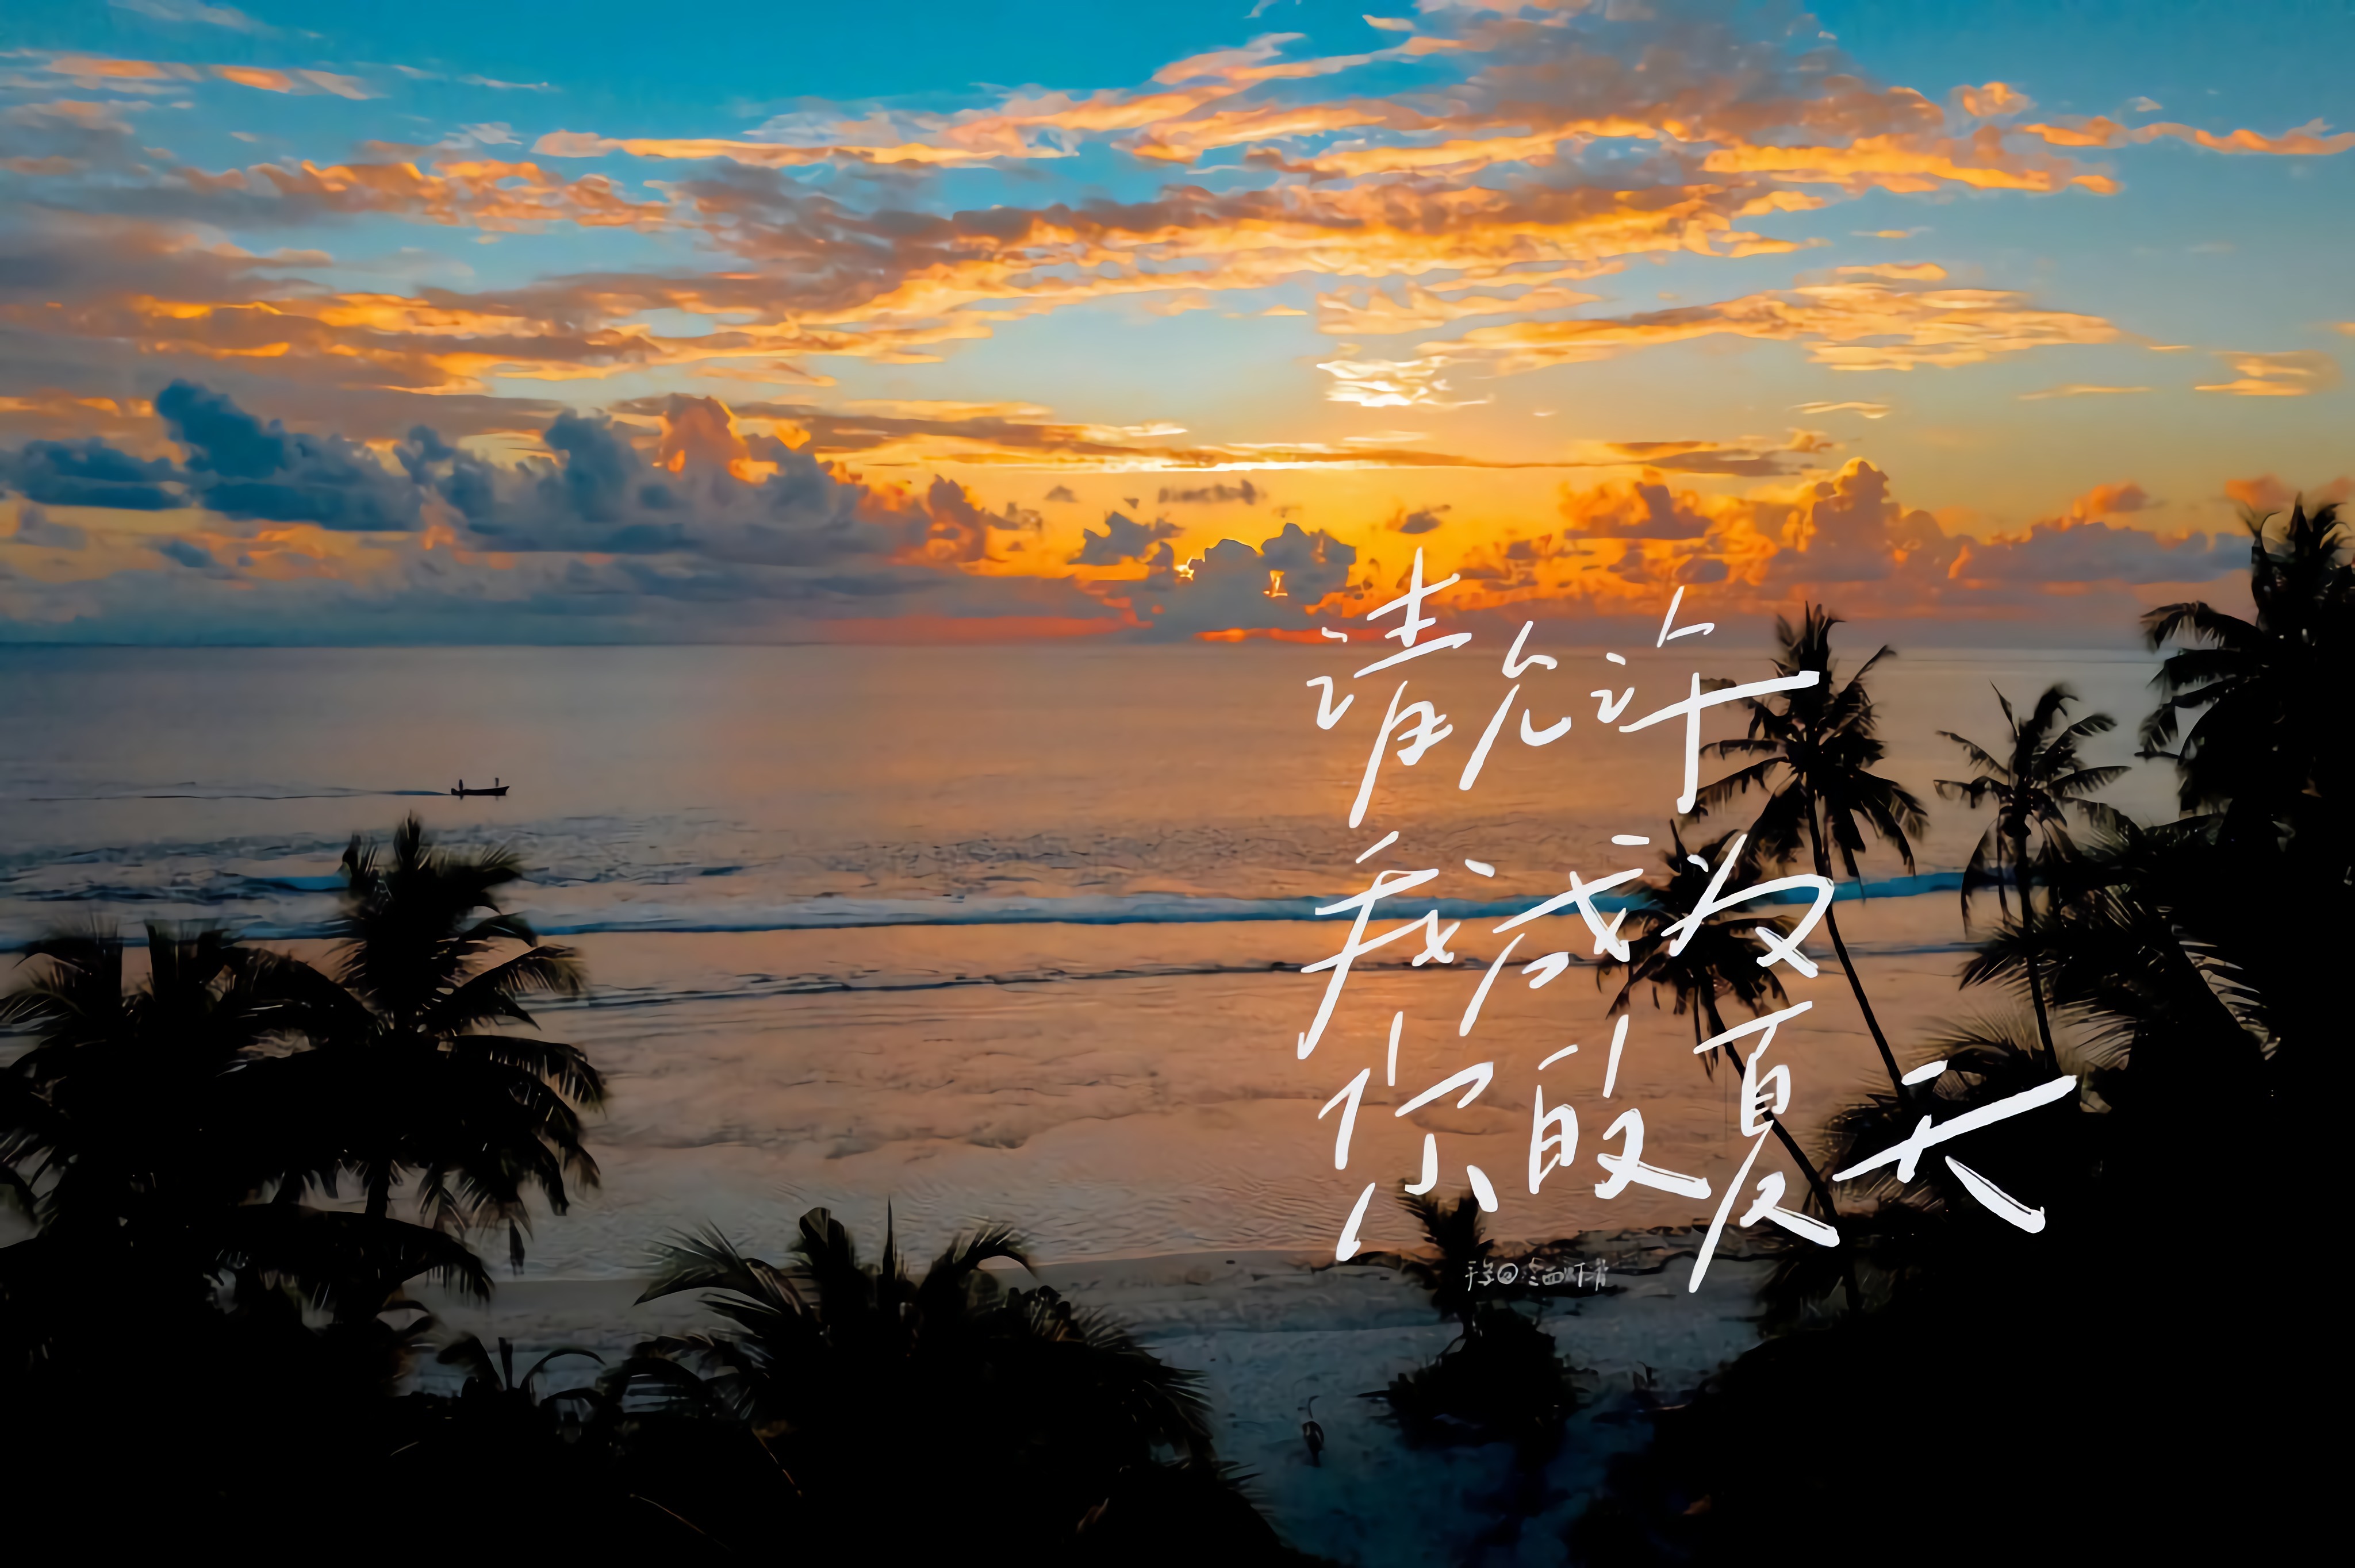 请允许
我成为
你的夏天